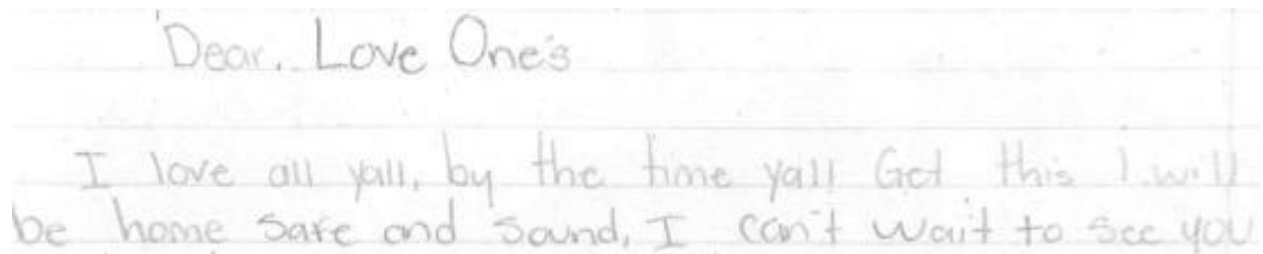 Dear. Love One's
I love all yall, by the time yall Get this I will
be home safe and sound, I can't wait to see you